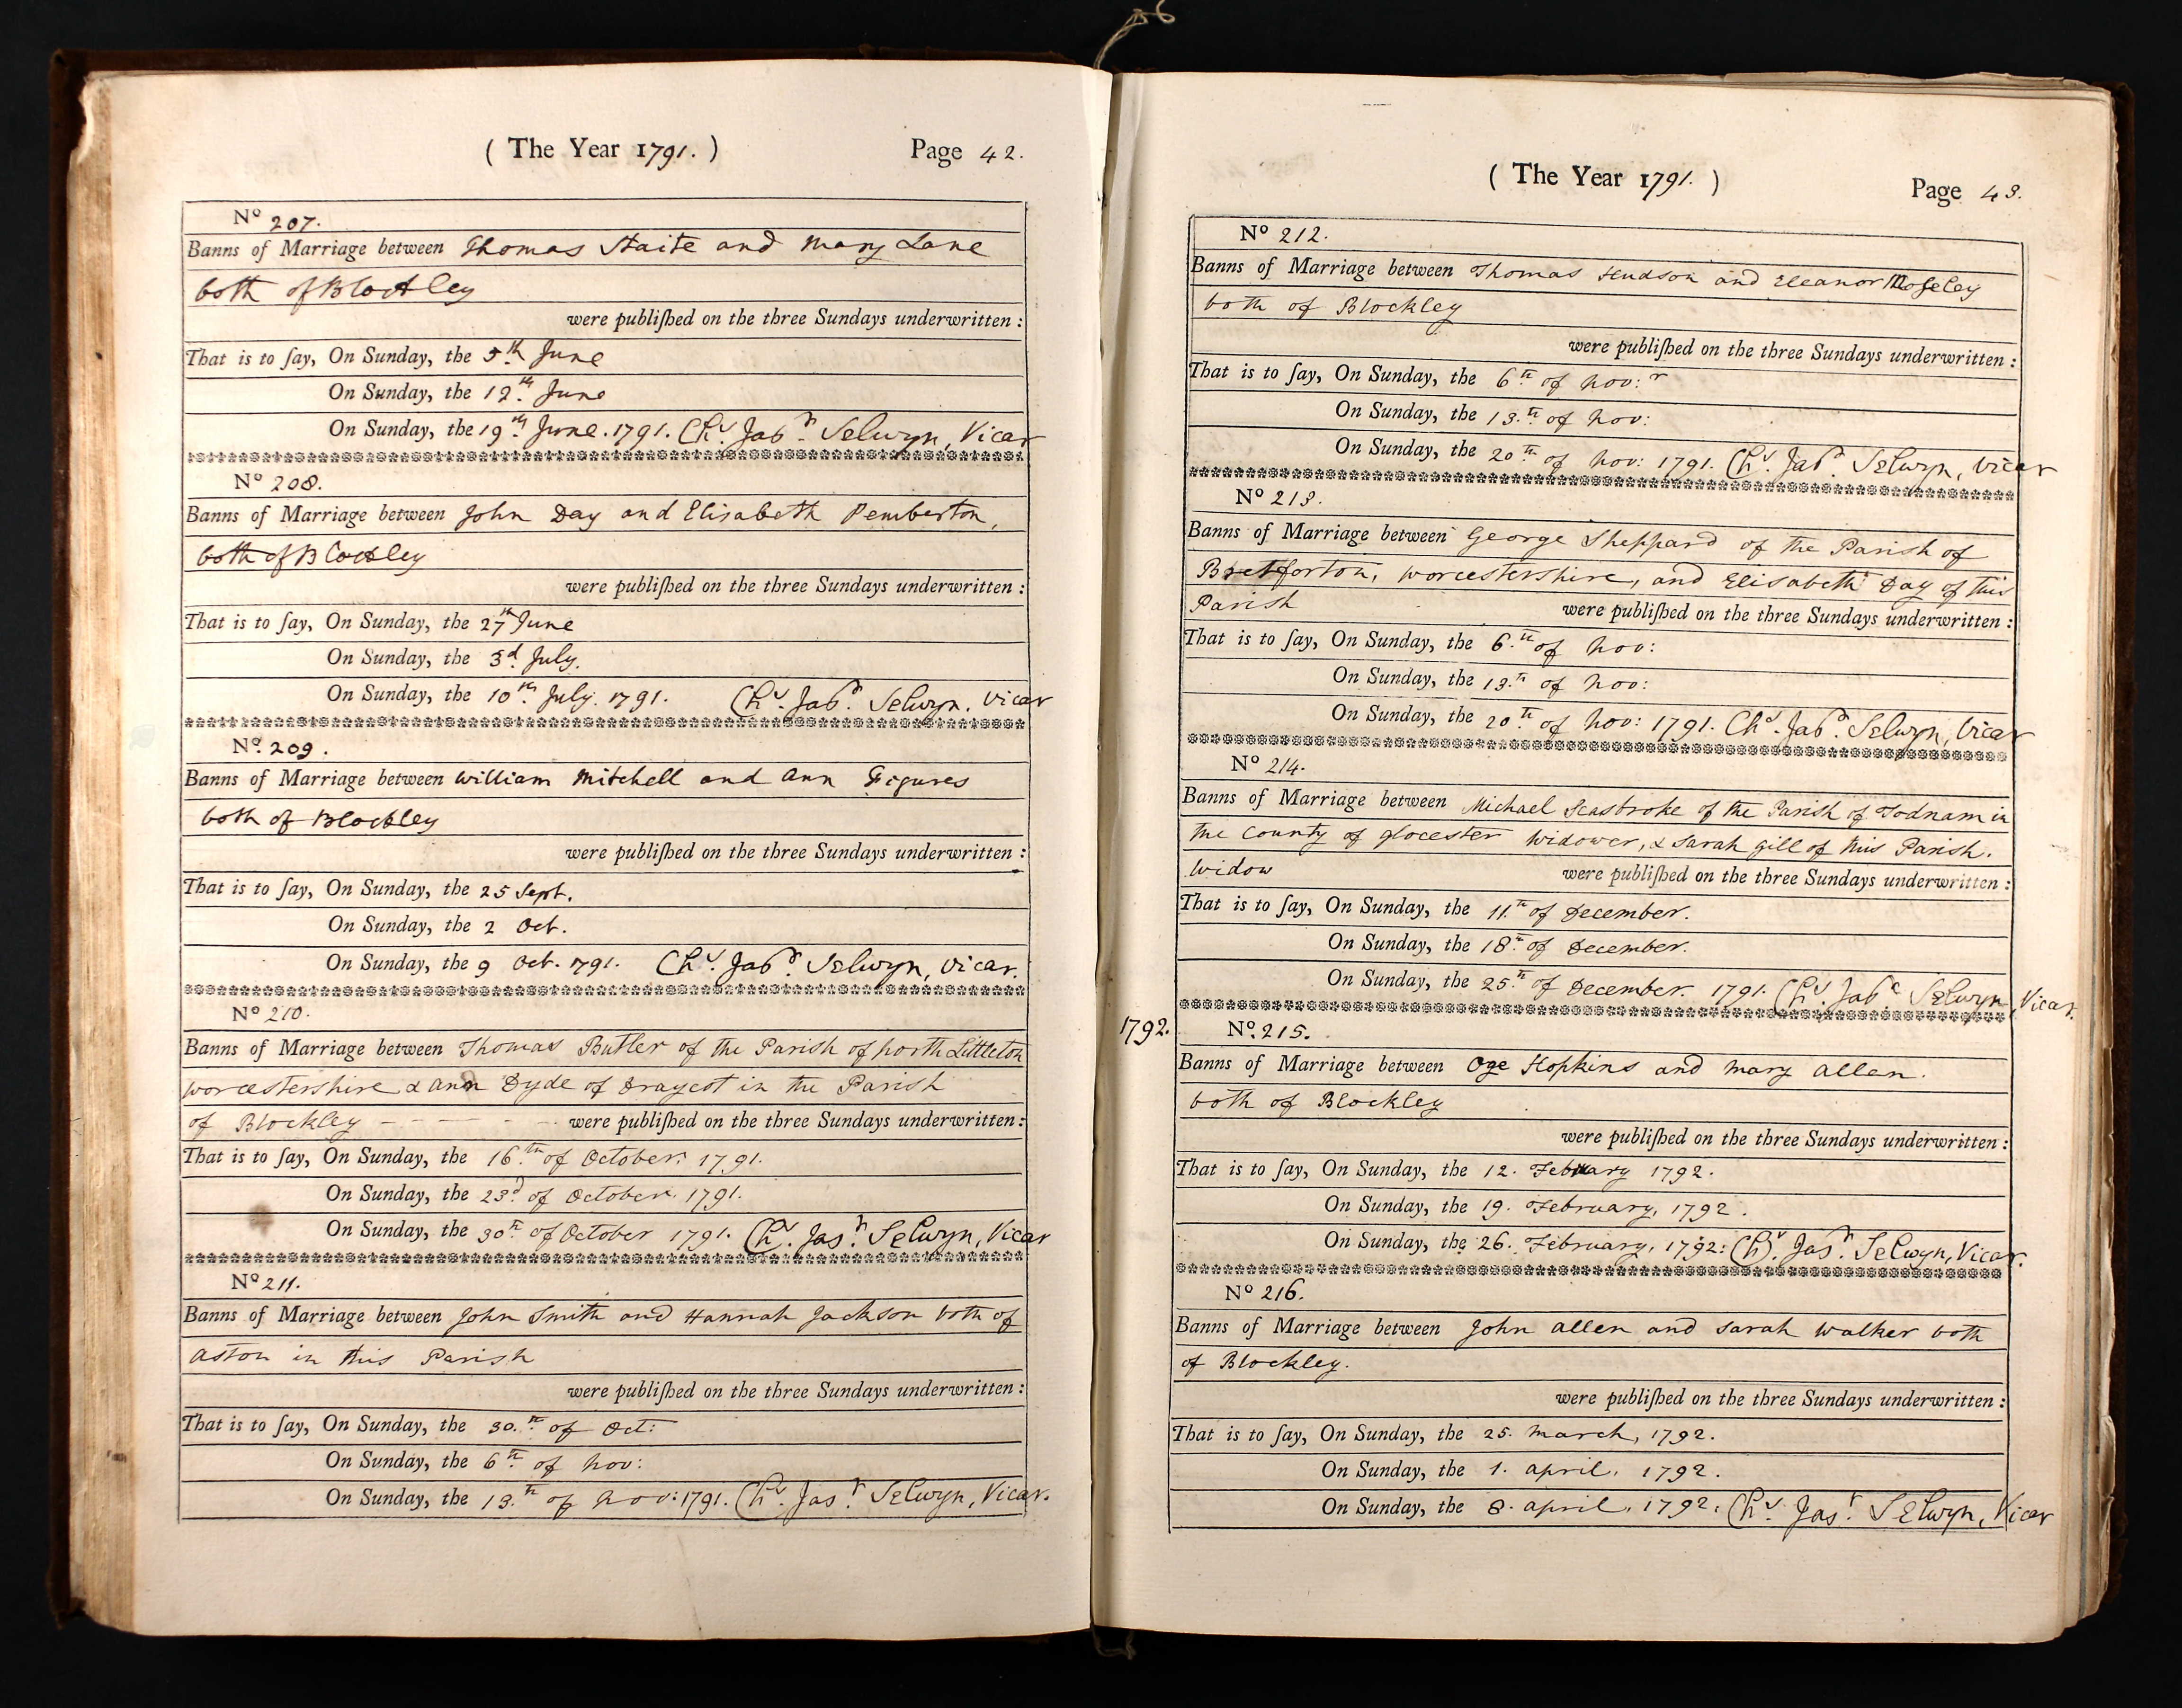 ( The Year 1791. ) Page 42.
No 207.
Banns of Marriage between Thomas Staite and Mary Lane
both of Blockley
were publiſhed on the three Sundays underwritten :
That is to ſay, On Sunday, the 5th June
On Sunday, the 12th June
On Sunday, the 19th June. 1791. Chs. Jasr. Selwyn, Vicar
No 208.
Banns of Marriage between John Day and Elisabeth Pemberton,
both of Blockley
were publiſhed on the three Sundays underwritten :
That is to ſay, On Sunday, the 27th June
On Sunday, the 3d. July.
On Sunday, the 10th July. 1791. Chs. Jasr. Selwyn. Vicar
No. 209.
Banns of Marriage between William Mitchell and Ann Figures
both of Blockley
were publiſhed on the three Sundays underwritten :
That is to ſay, On Sunday, the 25 Sept.
On Sunday, the 2 Oct.
On Sunday, the 9 Oct. 1791. Chs. Jasr. Selwyn, Vicar.
No 210.
Banns of Marriage between Thomas Butler of the Parish of North Littleton
Worcestershire & Ann Dyde of Draycot in the Parish
of Blockley - - - - - were publiſhed on the three Sundays underwritten :
That is to ſay, On Sunday, the 16th of October. 1791.
On Sunday, the 23d of October. 1791.
On Sunday, the 30th of October 1791. Chs. Jasr. Selwyn, Vicar
No 211.
Banns of Marriage between John Smith and Hannah Jackson both of
Aston in this Parish
were publiſhed on the three Sundays underwritten :
That is to ſay, On Sunday, the 30.th of Oct:
On Sunday, the 6th of Nov:
On Sunday, the 13.th of Nov: 1791. Chs. Jasr. Selwyn, Vicar.
( The Year 1791. ) Page 43.
No 212.
Banns of Marriage between Thomas Hudson and Eleanor Moseley
both of Blockley
were publiſhed on the three Sundays underwritten :
That is to ſay, On Sunday, the 6th of Nov:r
On Sunday, the 13.th of Nov:
On Sunday, the 20th of Nov: 1791. Chs. Jasr. Selwyn, Vicar
No 213.
Banns of Marriage between George Sheppard of the Parish of
Bretforton, Worcestershire, and Elisabeth Day of this
Parish were publiſhed on the three Sundays underwritten :
That is to ſay, On Sunday, the 6th of Nov:
On Sunday, the 13.th of Nov:
On Sunday, the 20th of Nov: 1791. Chs. Jasr. Selwyn, Vicar
No 214.
Banns of Marriage between Michael Seasbroke of the Parish of Todnam in
the County of Glocester Widower, & Sarah Gill of this Parish.
Widow were publiſhed on the three Sundays underwritten :
That is to ſay, On Sunday, the 11.th of December.
On Sunday, the 18th of December.
On Sunday, the 25th of December. 1791. Chs. Jasr. Selwyn, Vicar.
1792. No. 215.
Banns of Marriage between Oge Hopkins and Mary Allen.
both of Blockley
were publiſhed on the three Sundays underwritten :
That is to ſay, On Sunday, the 12. February 1792.
On Sunday, the 19. February, 1792.
On Sunday, the 26. February, 1792: Chs. Jasr. Selwyn, Vicar.
No 216.
Banns of Marriage between John Allen and Sarah Walker both
of Blockley.
were publiſhed on the three Sundays underwritten :
That is to ſay, On Sunday, the 25. March, 1792.
On Sunday, the 1. April, 1792.
On Sunday, the 8. April, 1792. Chs. Jasr. Selwyn, Vicar